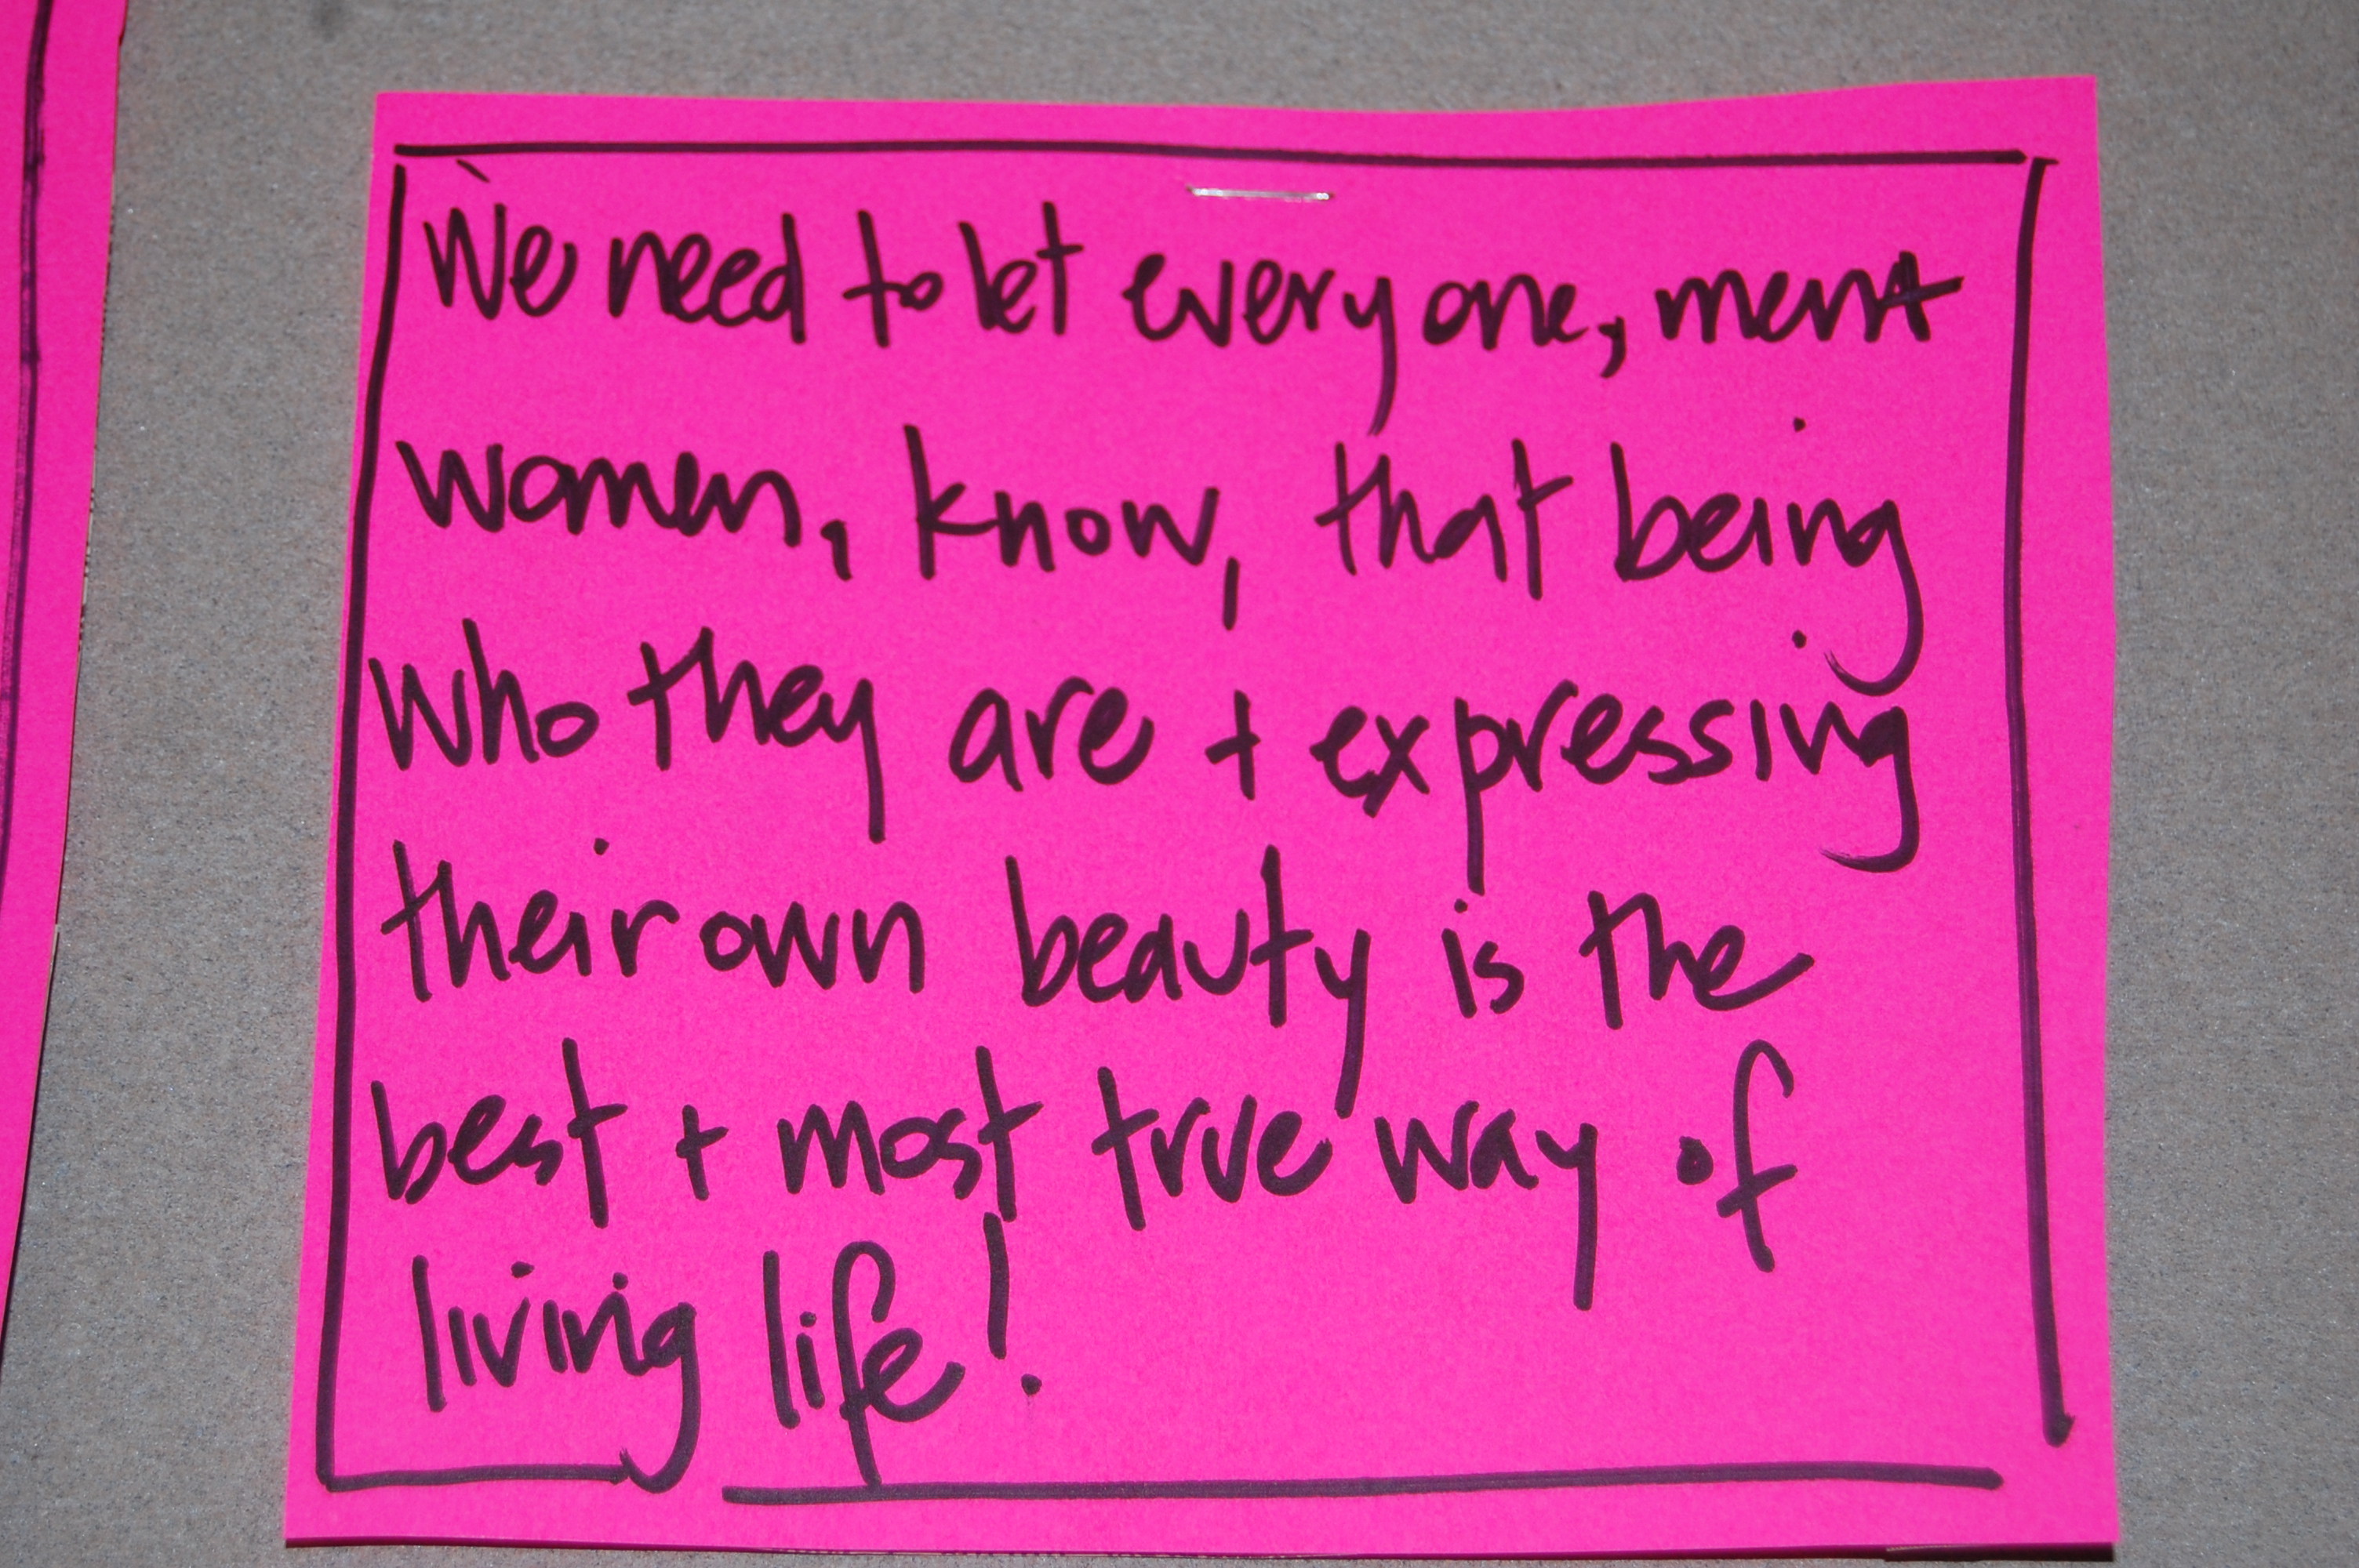 We need to let everyone, men+
women, know, that being
who they are + expressing
their own beauty is the
best + most true way of
living life!